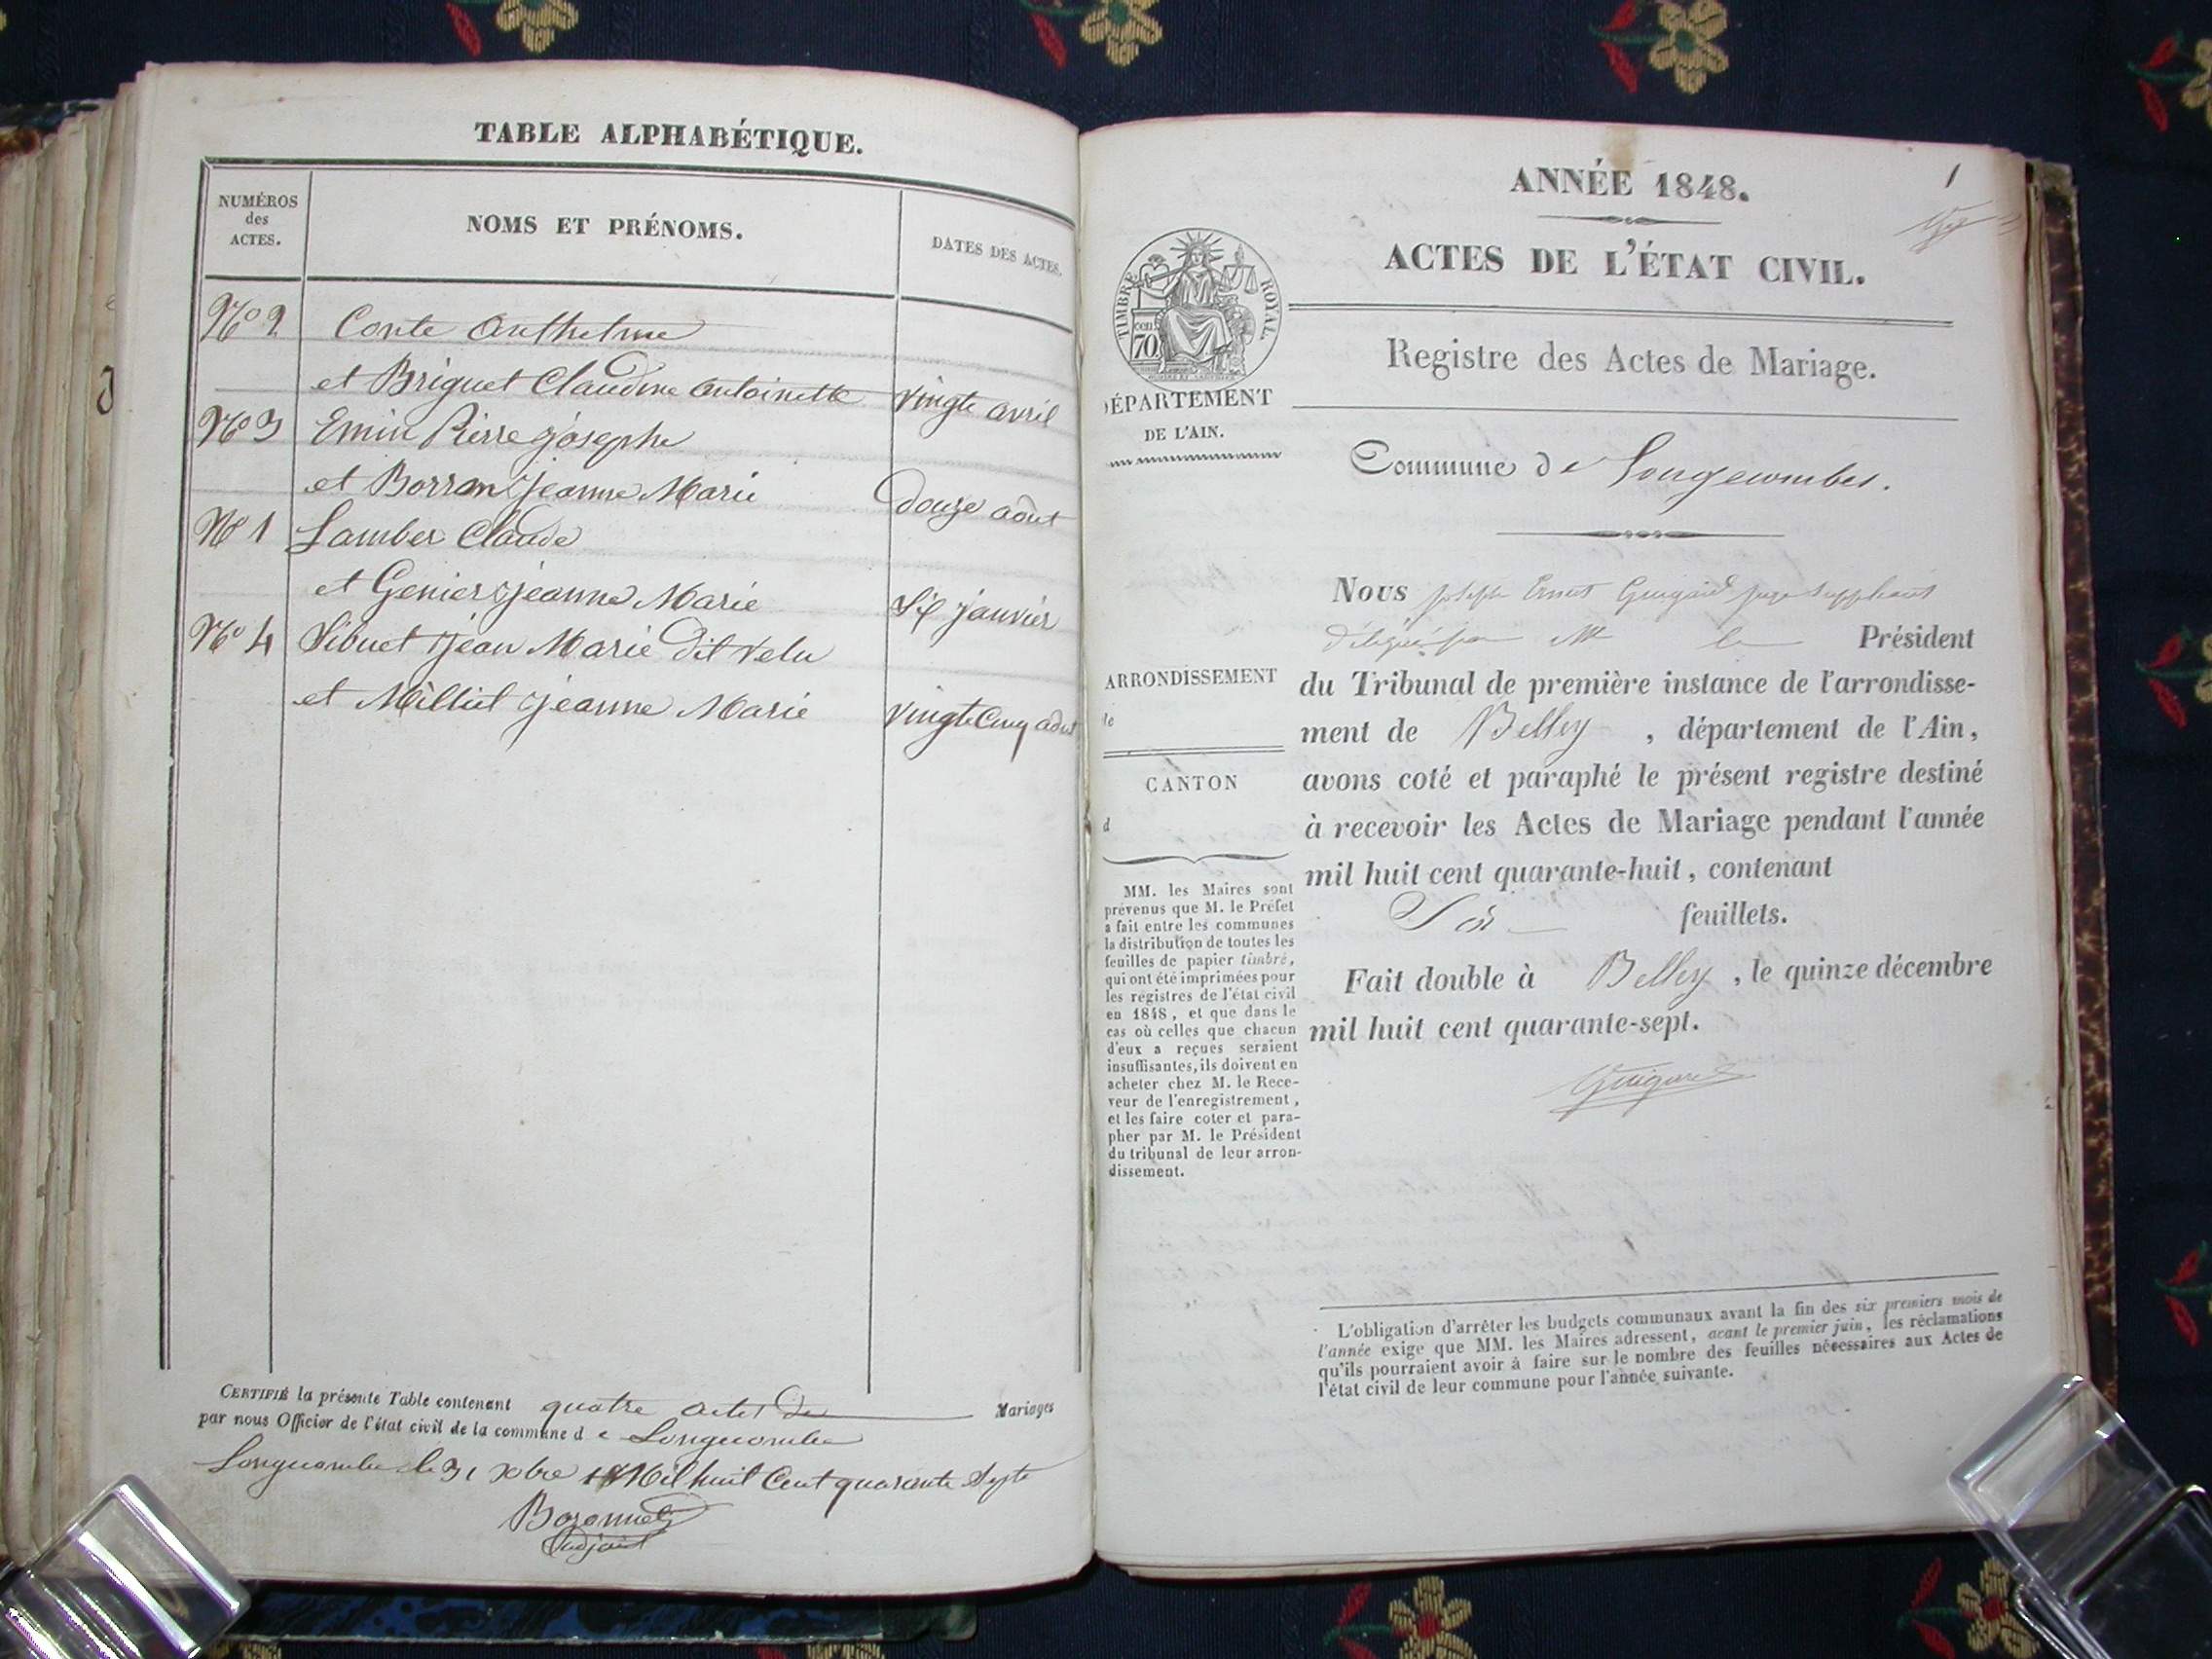 TABLE ALPHABÉTIQUE.
NUMÉROS
des
ACTES.
NOMS ET PRÉNOMS.
DATES DES ACTES.
No 2 Conte Anthelme
et Briguet Claudine Antoinette vingte avril
No 3 Emin Pierre joseph
et Borron jeanne Marie douze août
No 1 Lamber Claude
et Genier jeanne Marie Six janvier
No 4 Sibuet jean Marie dit velu
et Milliet jeanne Marie vingte Cinq août
CERTIFIÉ la présente Table contenant quatre actes de Mariages
par nous Officier de l'état civil de la commune d e Longecombe
Longecombe le 31 xbre Mil huit Cent quarante Septe
Bozonnet
adjoint
1
ANNÉE 1848.
ACTES DE L'ÉTAT CIVIL.
TIMBRE ROYAL
cen. 70
DÉPARTEMENT
DE L'AIN.
Registre des Actes de Mariage.
Commune de Longecombes.
Nous joseph Ernest Guigard juge Suppléant
délégué par Mr le Président
du Tribunal de première instance de l'arrondisse-
ment de Belley , département de l'Ain,
avons coté et paraphé le présent registre destiné
à recevoir les Actes de Mariage pendant l'année
mil huit cent quarante-huit, contenant
Six feuillets.
Fait double à Belley , le quinze décembre
mil huit cent quarante-sept.
Guigard
ARRONDISSEMENT
de
CANTON
d
MM. les Maires sont
prévenus que M. le Préfet
a fait entre les communes
la distribution de toutes les
feuilles de papier timbré,
qui ont été imprimées pour
les registres de l'état civil
en 1848, et que dans le
cas où celles que chacun
d'eux a reçues seraient
insuffisantes, ils doivent en
acheter chez M. le Rece-
veur de l'enregistrement,
et les faire coter et para-
pher par M. le Président
du tribunal de leur arron-
dissement.
L'obligation d'arrêter les budgets communaux avant la fin des six premiers mois de
l'année exige que MM. les Maires adressent, avant le premier juin, les réclamations
qu'ils pourraient avoir à faire sur le nombre des feuilles nécessaires aux Actes de
l'état civil de leur commune pour l'année suivante.